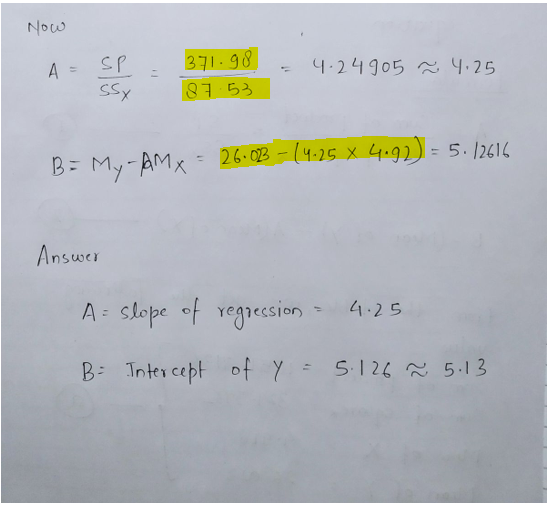 Now
A = SP/SSx = 371.98/87.53 = 4.24905 ≈ 4.25
B = My - AMx = 26.023 - (4.25 x 4.92) = 5.12616
Answer
A = slope of regression = 4.25
B = Intercept of Y = 5.126 ≈ 5.13